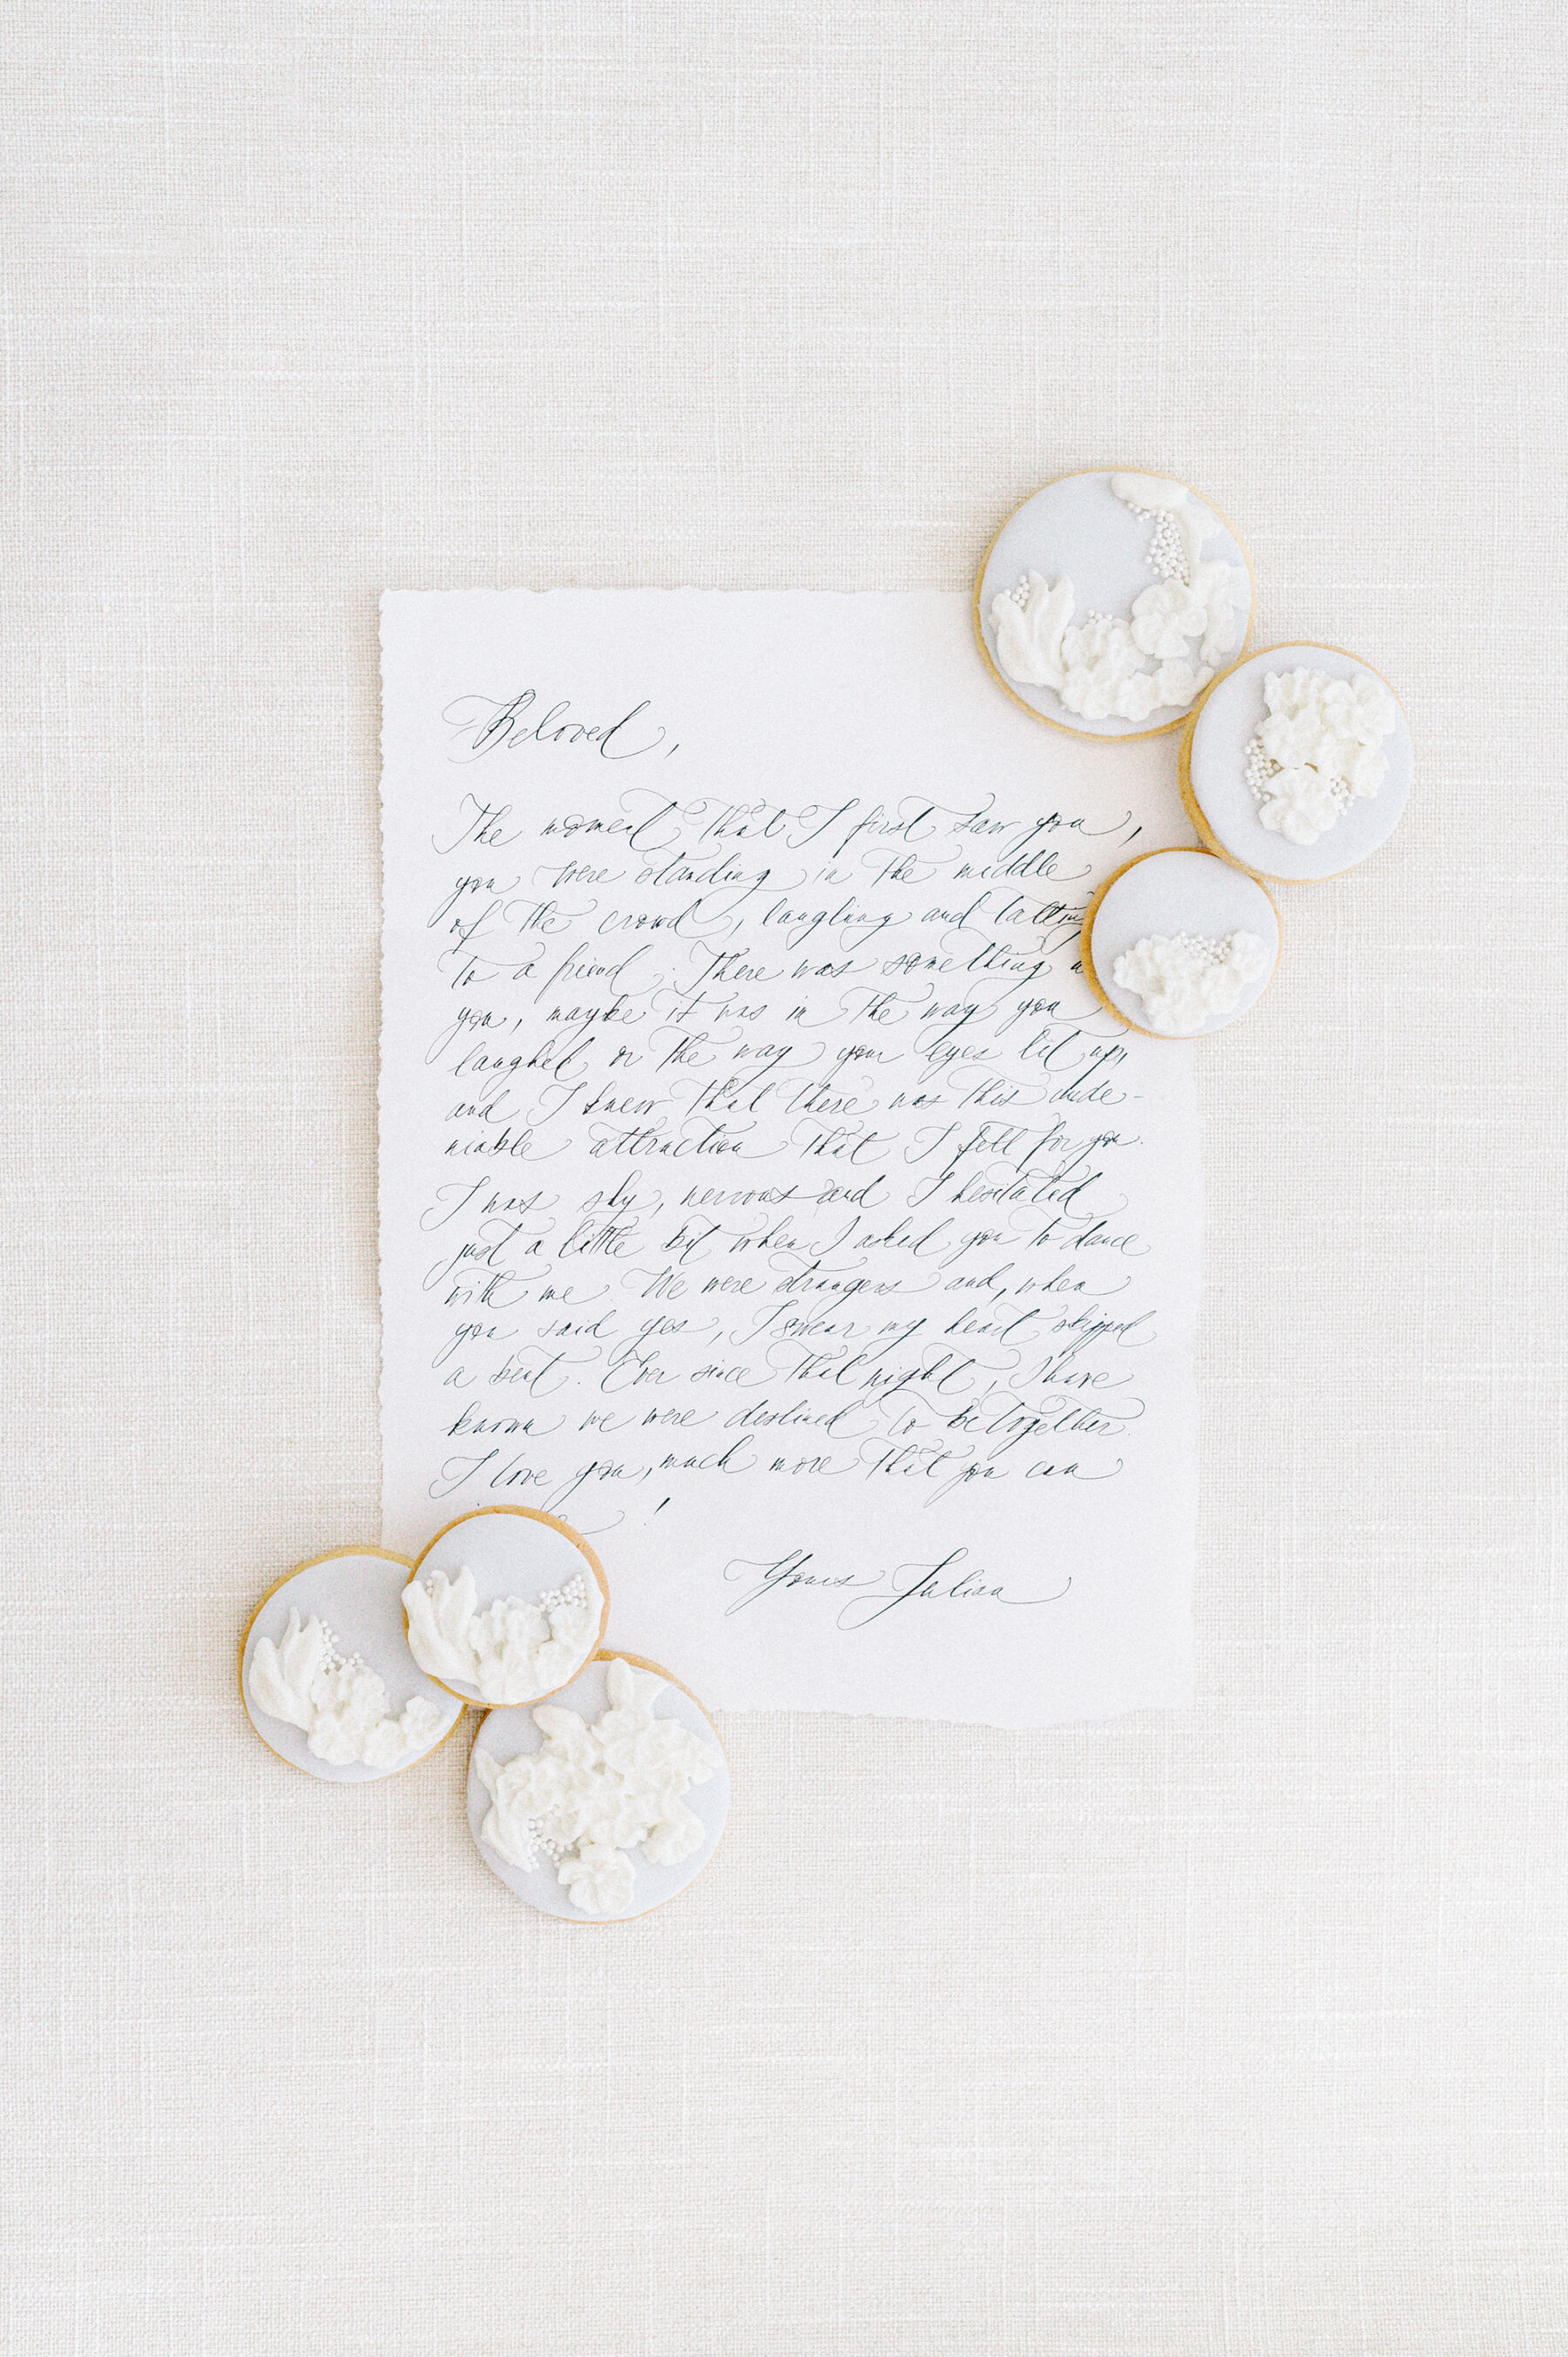 Beloved,
The moment that I first saw you,
you were standing in the middle
of the crowd, laughing and talking
to a friend. There was something
you, maybe it was in the way you
laughed or the way your eyes lit up,
and I knew that there was this unde-
niable attraction that I fell for you.
I was shy, nervous and I hesitated
just a little bit when I asked you to dance
with me. We were strangers and, when
you said yes, I swear my heart skipped
a beat. Ever since that night, I have
known we were destined to be together.
I love you, much more that you can
!
Yours Julian